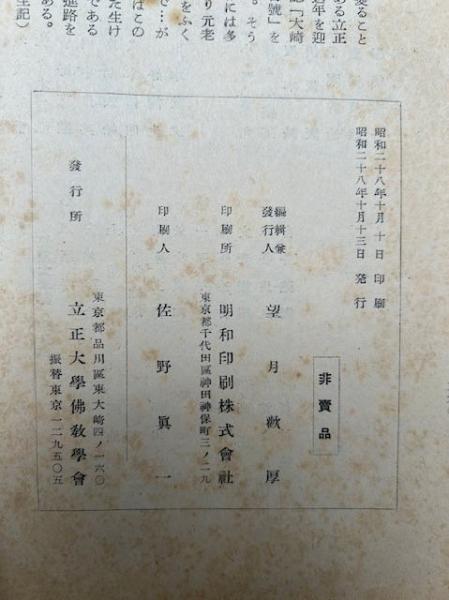 變ること
ある立正
周年を迎
誌「大崎
號」を
。そう
には多
り元老
をふく
で…が
はこの
た生け
である
進路を
ある。
生記）
昭和二十八年十月十日 印刷
昭和二十八年十月十三日 発行
非賣品
編輯兼
發行人 望月歡厚
印刷所 明和印刷株式會社
東京都千代田區神田神保町三ノ二九
印刷人 佐野眞一
發行所
東京都品川區東大崎四ノ一六〇
立正大學佛教學會
振替東京一二九五〇五